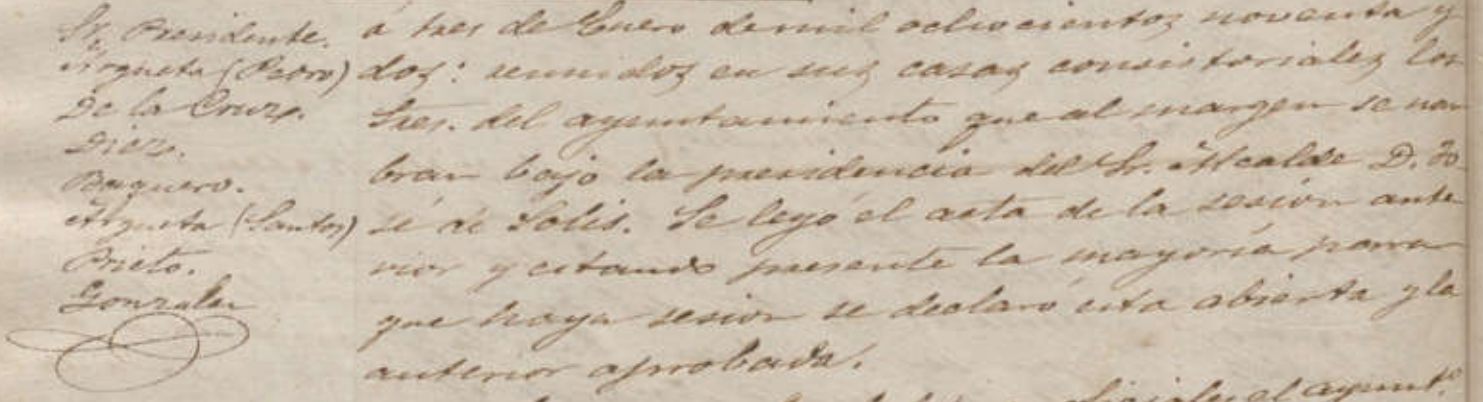 Sr. Presidente.
Argueta (Pedro)
De la Cruz.
Diez.
Baquero.
Argueta (Santos)
Prieto.
Gonzalez
á tres de Enero de mil ochocientos noventa y
dos: reunidos en sus casas consistoriales los
Sres. del ayuntamiento que al margen se nom
bran bajo la presidencia del Sr. Alcalde D. Jo-
sé de Solis. Se leyó el acta de la sesión ante
rior y estando presente la mayoría para
que haya sesión se declaró esta abierta y la
anterior aprobada.
el ayunt.º